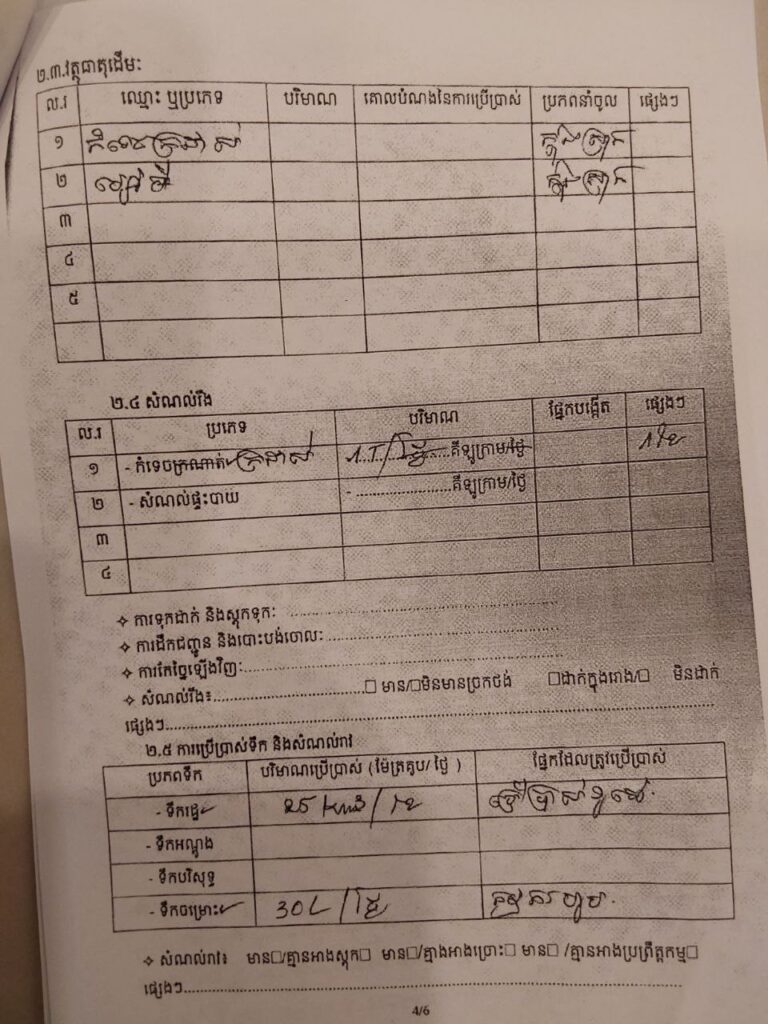 ២.៣.វត្ថុធាតុដើម:
ល.រ ឈ្មោះ ឬប្រភេទ បរិមាណ គោលបំណងនៃការប្រើប្រាស់ ប្រភពនាំចូល ផ្សេងៗ
១ កំទេចក្រដាស់ ក្នុងស្រុក
២ ម្សៅមី ក្នុងស្រុក
៣
៤
៥
២.៤ សំណល់រឹង
ល.រ ប្រភេទ បរិមាណ ផ្នែកបង្កើត ផ្សេងៗ
១ - កំទេចក្រណាត់ ក្រដាស់ 1.T/ថ្ងៃ គីឡូក្រាម/ថ្ងៃ
២ - សំណល់ផ្ទះបាយ - ........................គីឡូក្រាម/ថ្ងៃ
៣
៤
✧ ការទុកដាក់ និងស្តុកទុក: ............................................................
✧ ការដឹកជញ្ជូន និងបោះបង់ចោល: ............................................................
✧ ការកែច្នៃឡើងវិញ:............................................................
✧ សំណល់រឹង៖..............................□ មាន/□មិនមានច្រកថង់ □ដាក់ក្នុងរោង/□ មិនដាក់
ផ្សេងៗ............................................................
២.៥ ការប្រើប្រាស់ទឹក និងសំណល់រាវ
ប្រភពទឹក បរិមាណប្រើប្រាស់ (ម៉ែត្រគូប/ ថ្ងៃ ) ផ្នែកដែលត្រូវប្រើប្រាស់
- ទឹករដ្ឋ 25
- ទឹកអណ្តូង
- ទឹកបរិសុទ្ធ
- ទឹកចម្រោះ 30L/ថ្ងៃ
✧ សំណល់រាវ៖ មាន□/គ្មានអាងស្តុក□ មាន□/គ្មាងអាងប្រោះ□ មាន□ /គ្មានអាងប្រព្រឹត្តកម្ម□
ផ្សេងៗ............................................................
4/6